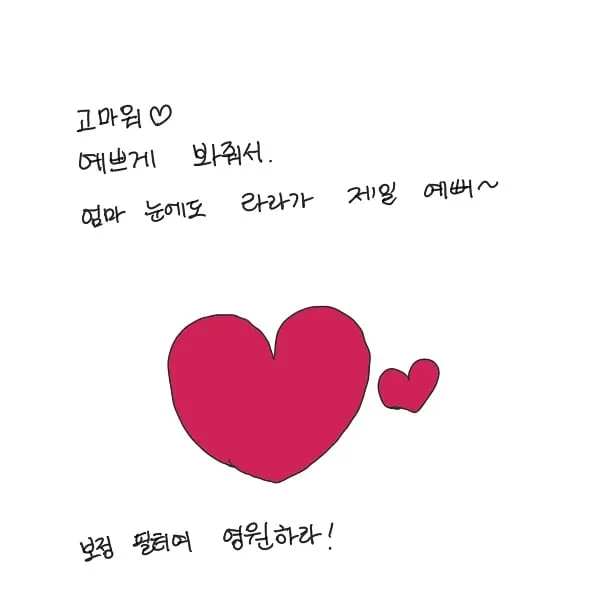 고마워♡
예쁘게 봐줘서.
엄마 눈에도 라라가 제일 예뻐~
보정 필터여 영원하라!